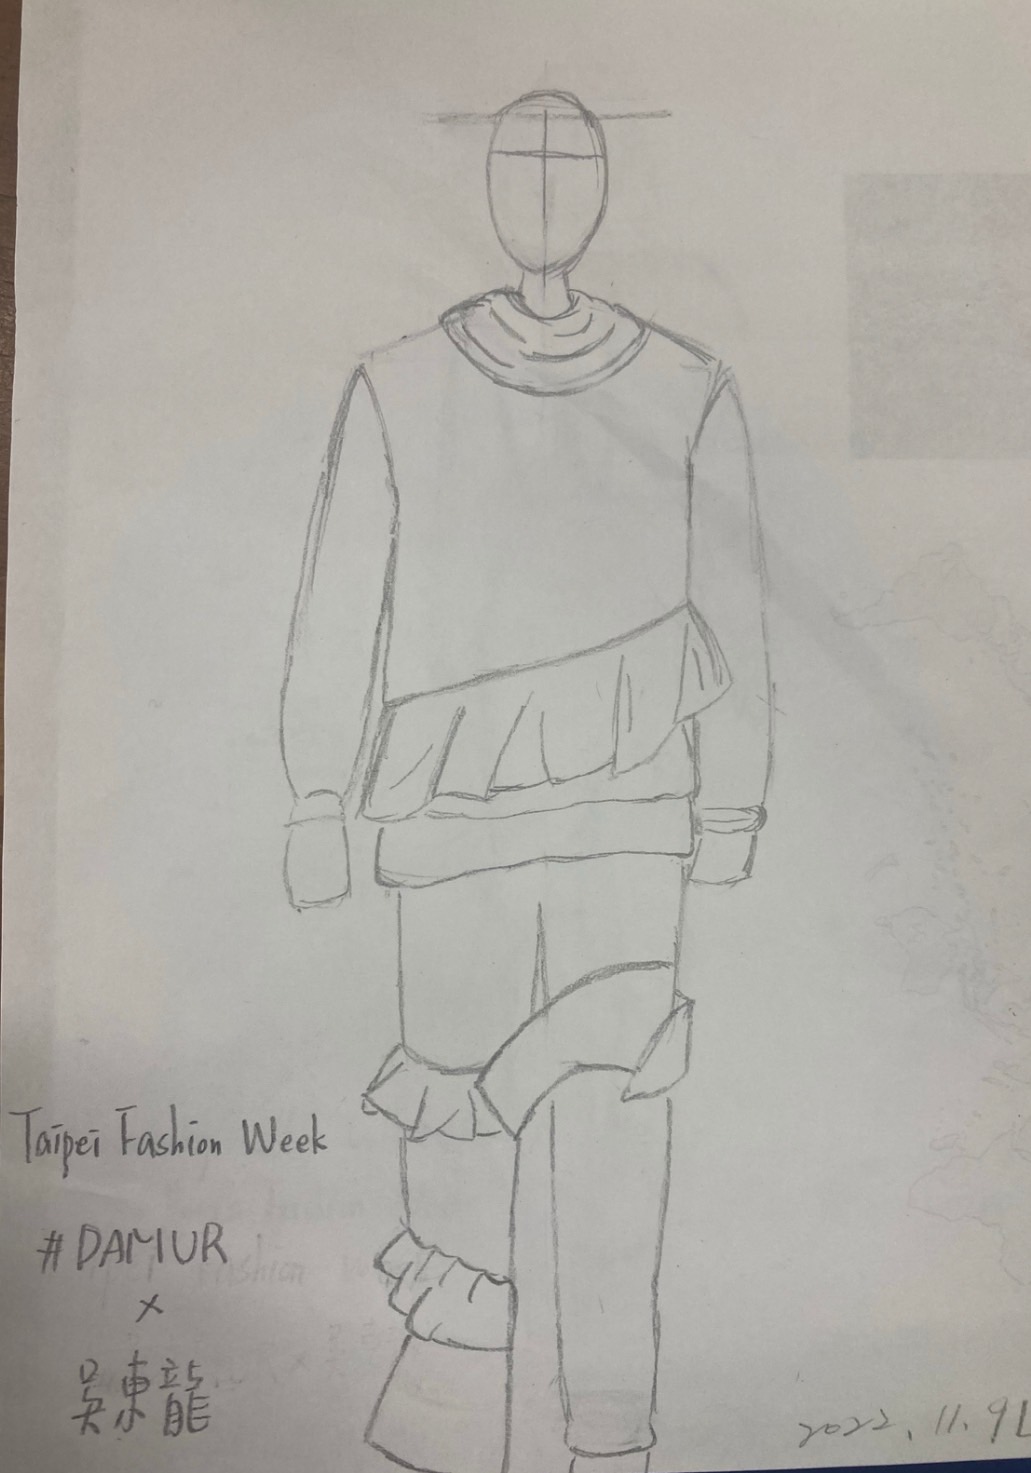 Taipei Fashion Week
#DAMUR
×
吳東龍
2022.11.9